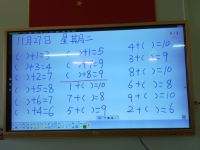 11月27日 星期二
( )+1=
( )+3=4
( )+2=7
( )+5=8
( )+6=7
( )+4=6
( )+1=5
( )+8=9
1+( )=10
7+( )=8
6+( )=9
4+( )=10
3+( )=9
8+( )=10
6+( )=8
9+( )=10
2+( )=6